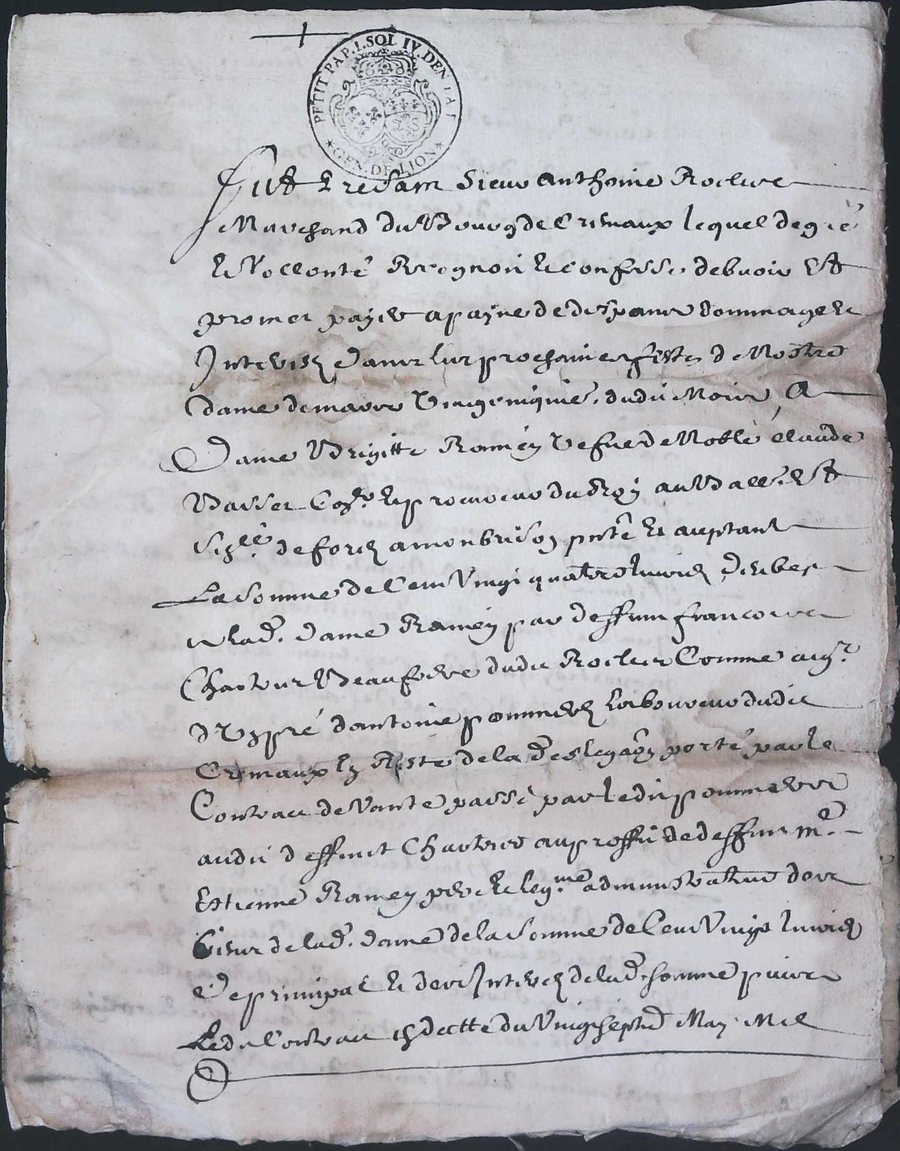 PETIT PAP. 1. SOL IV. DEN. LA F.
★ GEN. DE LION ★
Fut present Sieur Anthoine Rocleve
Marchand du Bourg de Cremaux lequel de gré
et Vollonté Recognoit et confesse debvoir Et
promet payer a payne de despans dommages et
Interests dans les prochaines festes de Nostre
dame de mars Vingcinquie. dudit Mois, A
Dame Brigitte Raméy Vefue de Noble Claude
Vasser et procureur du Roy au Baill. Et
de forez a monbrison pnte et aceptant
La somme de Cent Vingt quatre livres deubes
a lad. dame Raméy par deffunt francois
Chartier Beaufrere dudit Rocleve Comme
d'antoine pommerez laboureur dudit
Cremaux Reste de la porté par le
Contract de Vante passé par ledit pommerez
audit deffunct Chartier au proffit de deffunt mr.
Estienne Ramey pere et legme. administrateur
de lad. dame de la somme de Cent Vingt livres
De principal et des Interests de lad. somme
Ledit Contract en datte du Vingt sept May Mil